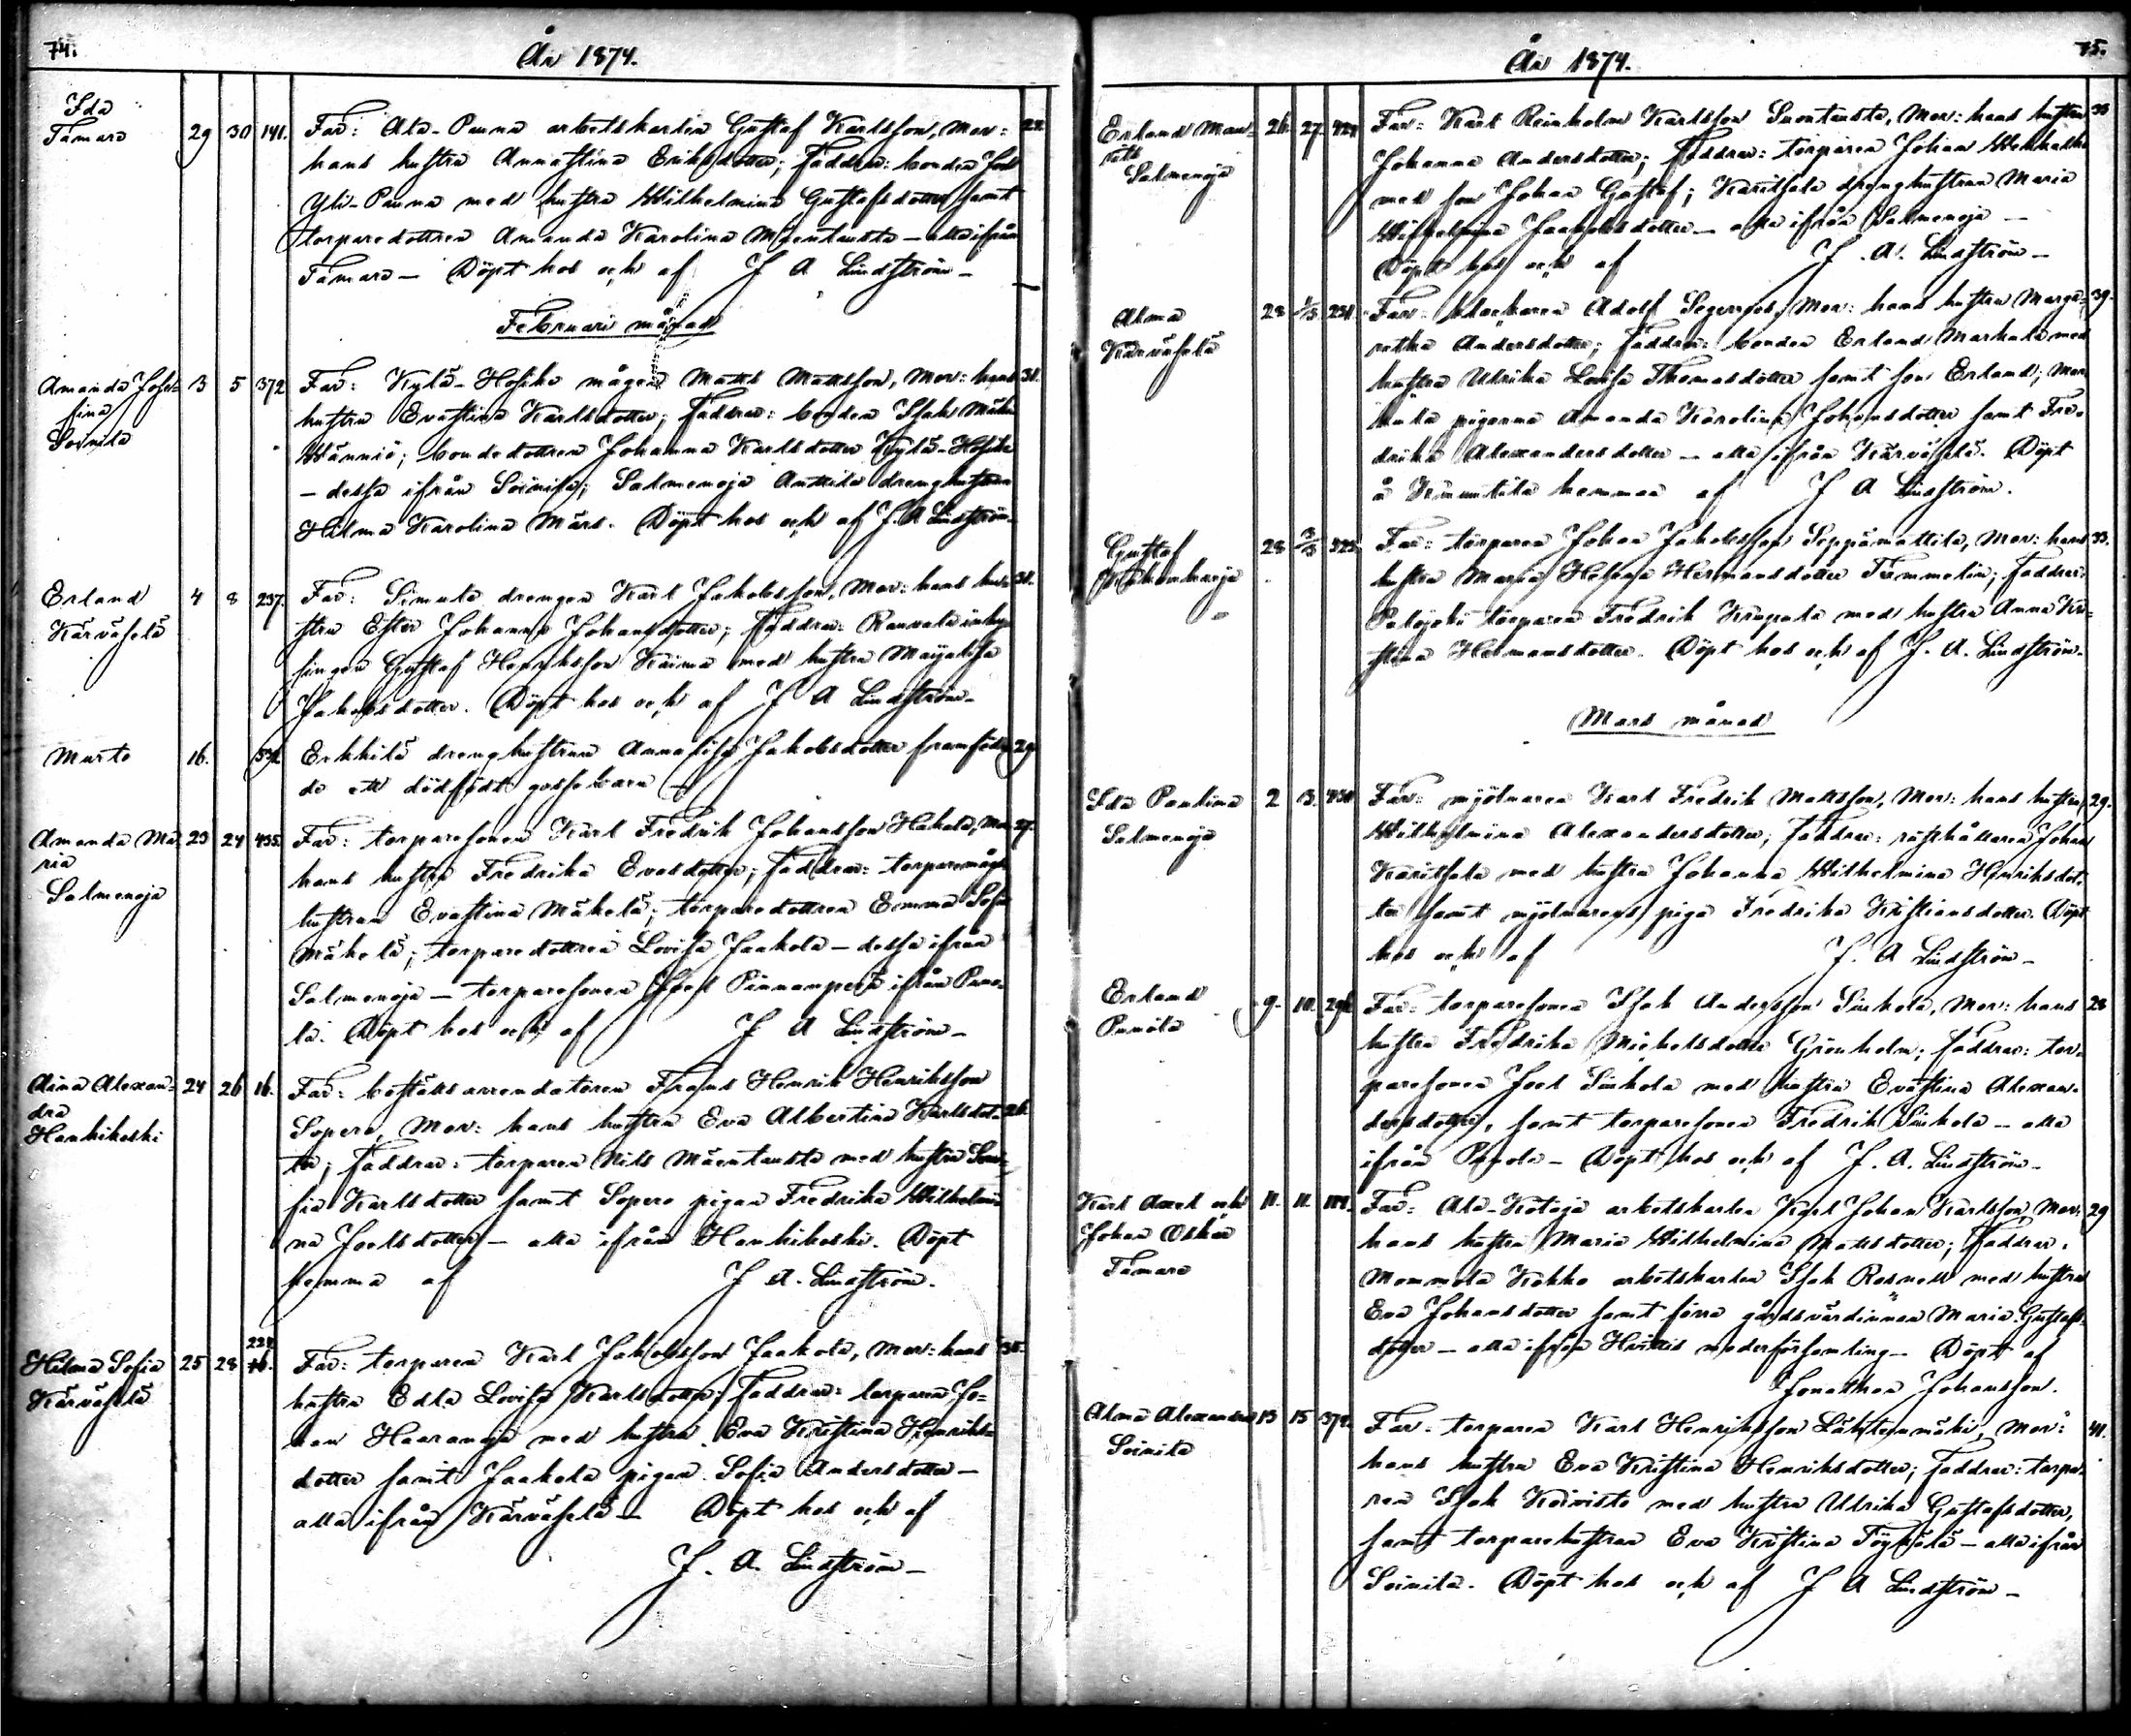 74.
År 1874.
Ida
Tamare
29 30 141.
Far: Ala-Pauna arbetskarlen Gustaf Karlsson, Mor:
22.
hans hustru Annastina Eriksdotter; Faddrar: bonden Joel
Yli-Pauna med hustru Wilhelmina Gustafsdotter samt
torparedottren Amanda Karolina Mäentausta – alla ifrån
Tamare – Döpt hos och af J A Lindström –
Februari månad
Amanda Jose-
fina
Soinila
3 5 372
Far: Kylä-Hosike mågen Matts Mattsson, Mor: hans
31.
hustru Evastina Karlsdotter; Faddrar: bonden Isak
Männiö; bondedottren Johanna Karlsdotter Kylä-Hosike
– dessa ifrån Soinila; Salmenoja Anttila drenghustrun
Hilma Karolina Mars. Döpt hos och af J. A Lindström.
Erland
Kärväselä
4 8 237.
Far: Simula drengen Karl Jakobsson, Mor: hans hu-
31.
stru Ester Johanna Johansdotter; Faddrar: Rauvala inhy-
singen Gustaf Henriksson Kaima med hustru Majalisa
Jakobsdotter. Döpt hos och af J A Lindström –
Murto
16.
Erkkilä drenghustrun Annalisa Jakobsdotter framföd-
29
de ett dödfödt gossebarn –
Amanda Ma-
ria
Salmenoja
23 24 435.
Far: torparesonen Karl Fredrik Johansson Hakala, Mor
27.
hans hustru Fredrika Evasdotter; Faddrar: torparemåg-
hustrun Evastina Mäkelä; torparedottren Emma Sofia
Mäkelä; torparedottren Lovisa Jaakola – dessa ifrån
Salmenoja – torparesonen Joel Pinnanperä ifrån Puno-
la. Döpt hos och af J A Lindström –
Aina Alexan-
dra
Hanhikoski
24 26 16.
Far: boställsarrendatoren Frans Henrik Henriksson
Sopero, Mor: hans hustru Eva Albertina Karlsdot-
26.
ter; Faddrar: torparen Nils Mäentausta med hustru
fia Karlsdotter samt Sopero pigan Fredrika Wilhelmi-
na Joelsdotter – alla ifrån Hanhikoski. Döpt
hemma af J A. Lindström.
Hilma Sofia
Kärväselä
25 28 227
16.
Far: torparen Karl Jakobsson Jaakola, Mor: hans
35.
hustru Edla Lovisa Karlsdotter; Faddrar: torparen Jo-
han Haaranoja med hustru Eva Kristina Henriks-
dotter samt Jaakola pigan Sofia Andersdotter –
alla ifrån Kärväselä – Döpt hos och af
J. A. Lindström –
75.
År 1874.
Erland Mau-
rits
Salmenoja
26. 27. 424
Far: Karl Reinholm Karlsson Suontausta, Mor: hans hustru
33
Johanna Andersdotter; Faddrar: torparen Johan
med son Johan Gustaf; Karitsala drenghustrun Maria
Wilhelmina Jaakobsdotter – alla ifrån Salmenoja –
Döpt hos och af J. A. Lindström –
Alma
Kärväselä
28 1/3 231.
Far: klockaren Adolf Segerros, Mor: hans hustru Marga-
39.
retha Andersdotter; Faddrar: bonden Erland Markula med
hustru Ulrika Lovisa Thomasdotter samt son Erland; Mar-
kula pigorna Amanda Karolina Johansdotter samt Fre-
drika Alexandersdotter – alla ifrån Kärväselä. Döpt
å Knuutila hemman af J A Lindström.
Gustaf
28 3/3 325
Far: torparen Johan Jakobsson Seppämattila, Mor: hans
33.
hustru Maria Helena Hermansdotter Tammelin; Faddrar:
Palojoki torparen Fredrik Krapula med hustru Anna Kri-
stina Hermansdotter. Döpt hos och af J. A. Lindström.
Mars månad
Ida Paulina
Salmenoja
2 3. 430
Far: mjölnaren Karl Fredrik Mattsson, Mor: hans hustru
29.
Wilhelmina Alexandersdotter; Faddrar: rusthållaren Johan
Karitsala med hustru Johanna Wilhelmina Henriksdot-
ter samt mjölnarens piga Fredrika Kristiansdotter. Döpt
hos och af J. A Lindström –
Erland
Punola
9. 10. 296
Far: torparesonen Isak Andersson Sinkola, Mor: hans
28
hustru Fredrika Michelsdotter Grönholm; Faddrar: tor-
paresonen Joel Sinkola med hustru Evastina Alexan-
dersdotter, samt torparesonen Fredrik Sinkola – alla
ifrån Punola – Döpt hos och af J. A. Lindström –
Karl Axel och
Johan Oskar
Tamare
11. 11. 144.
Far: Ala-Kotoja arbetskarlen Karl Johan Karlsson, Mor:
29
hans hustru Maria Wilhelmina Mattsdotter; Faddrar:
Mommola Kakko arbetskarlen Isak Rosnell med hustru
Eva Johansdotter samt förra gårdsvärdinnan Maria Gustafs-
dotter – alla ifrån Hvittis moderförsamling – Döpt af
Jonathan Johansson.
Alma Alexandra
Soinila
13 15 372.
Far: torparen Karl Henriksson Lähteenmäki, Mor:
41.
hans hustru Eva Kristina Henriksdotter; Faddrar: torpa-
ren Isak Koivisto med hustru Ulrika Gustafsdotter,
samt torparehustrun Eva Kristina Töykälä – alla ifrån
Soinila. Döpt hos och af J A Lindström –